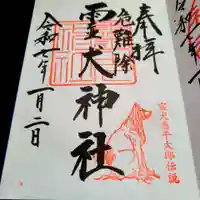 奉拝
危難除
霊犬神社
令和七年一月二日
霊犬悉平太郎伝説